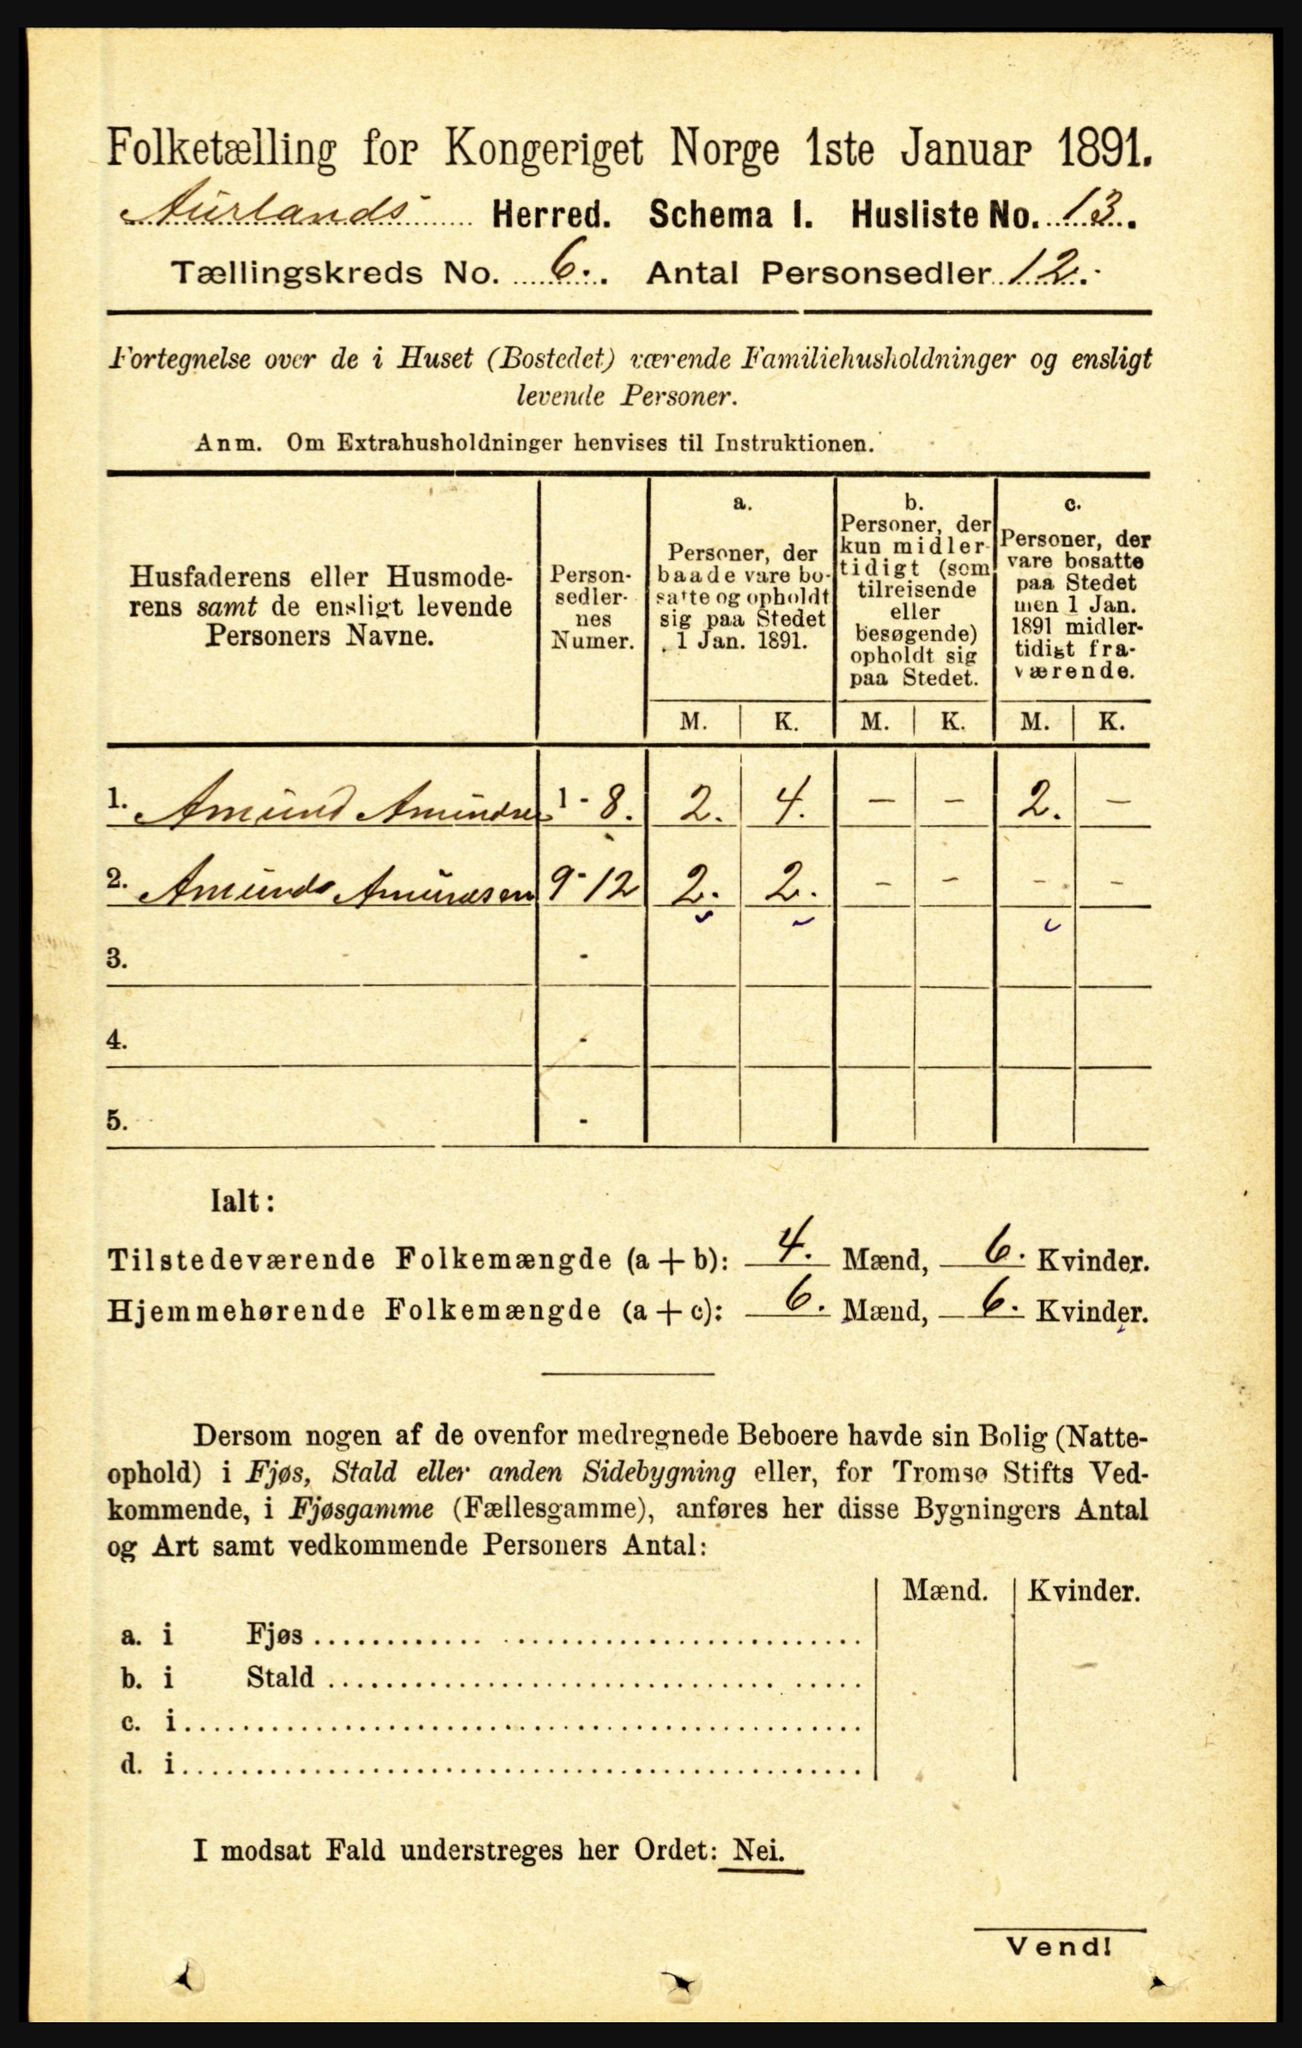 Folketælling for Kongeriget Norge 1ste Januar 1891.
Aurlands Herred. Schema I. Husliste No. 13.
Tællingskreds No. 6. Antal Personsedler 12.
Fortegnelse over de i Huset (Bostedet) værende Familiehusholdninger og ensligt
levende Personer.
Anm. Om Extrahusholdninger henvises til Instruktionen.
Husfaderens eller Husmode-
rens samt de ensligt levende
Personers Navne.
Person-
sedler-
nes
Numer.
a.
Personer, der
baade vare bo-
satte og opholdt
sig paa Stedet
1 Jan. 1891.
b.
Personer, der
kun midler-
tidigt (som
tilreisende
eller
besøgende)
opholdt sig
paa Stedet.
c.
Personer, der
vare bosatte
paa Stedet
men 1 Jan.
1891 midler-
tidigt fra-
værende.
M. K. M. K. M. K.
1. Amund Amundsen 1 - 8. 2. 4. - - 2. -
2. Amund Amundsen 9 - 12 2. 2. - - - -
3. -
4. -
5. -
Ialt:
Tilstedeværende Folkemængde (a + b): 4. Mænd, 6. Kvinder.
Hjemmehørende Folkemængde (a + c): 6. Mænd, 6. Kvinder.
Dersom nogen af de ovenfor medregnede Beboere havde sin Bolig (Natte-
ophold) i Fjøs, Stald eller anden Sidebygning eller, for Tromsø Stifts Ved-
kommende, i Fjøsgamme (Fællesgamme), anføres her disse Bygningers Antal
og Art samt vedkommende Personers Antal:
Mænd. Kvinder.
a. i Fjøs
b. i Stald
c. i
d. i
I modsat Fald understreges her Ordet: Nei.
Vend!